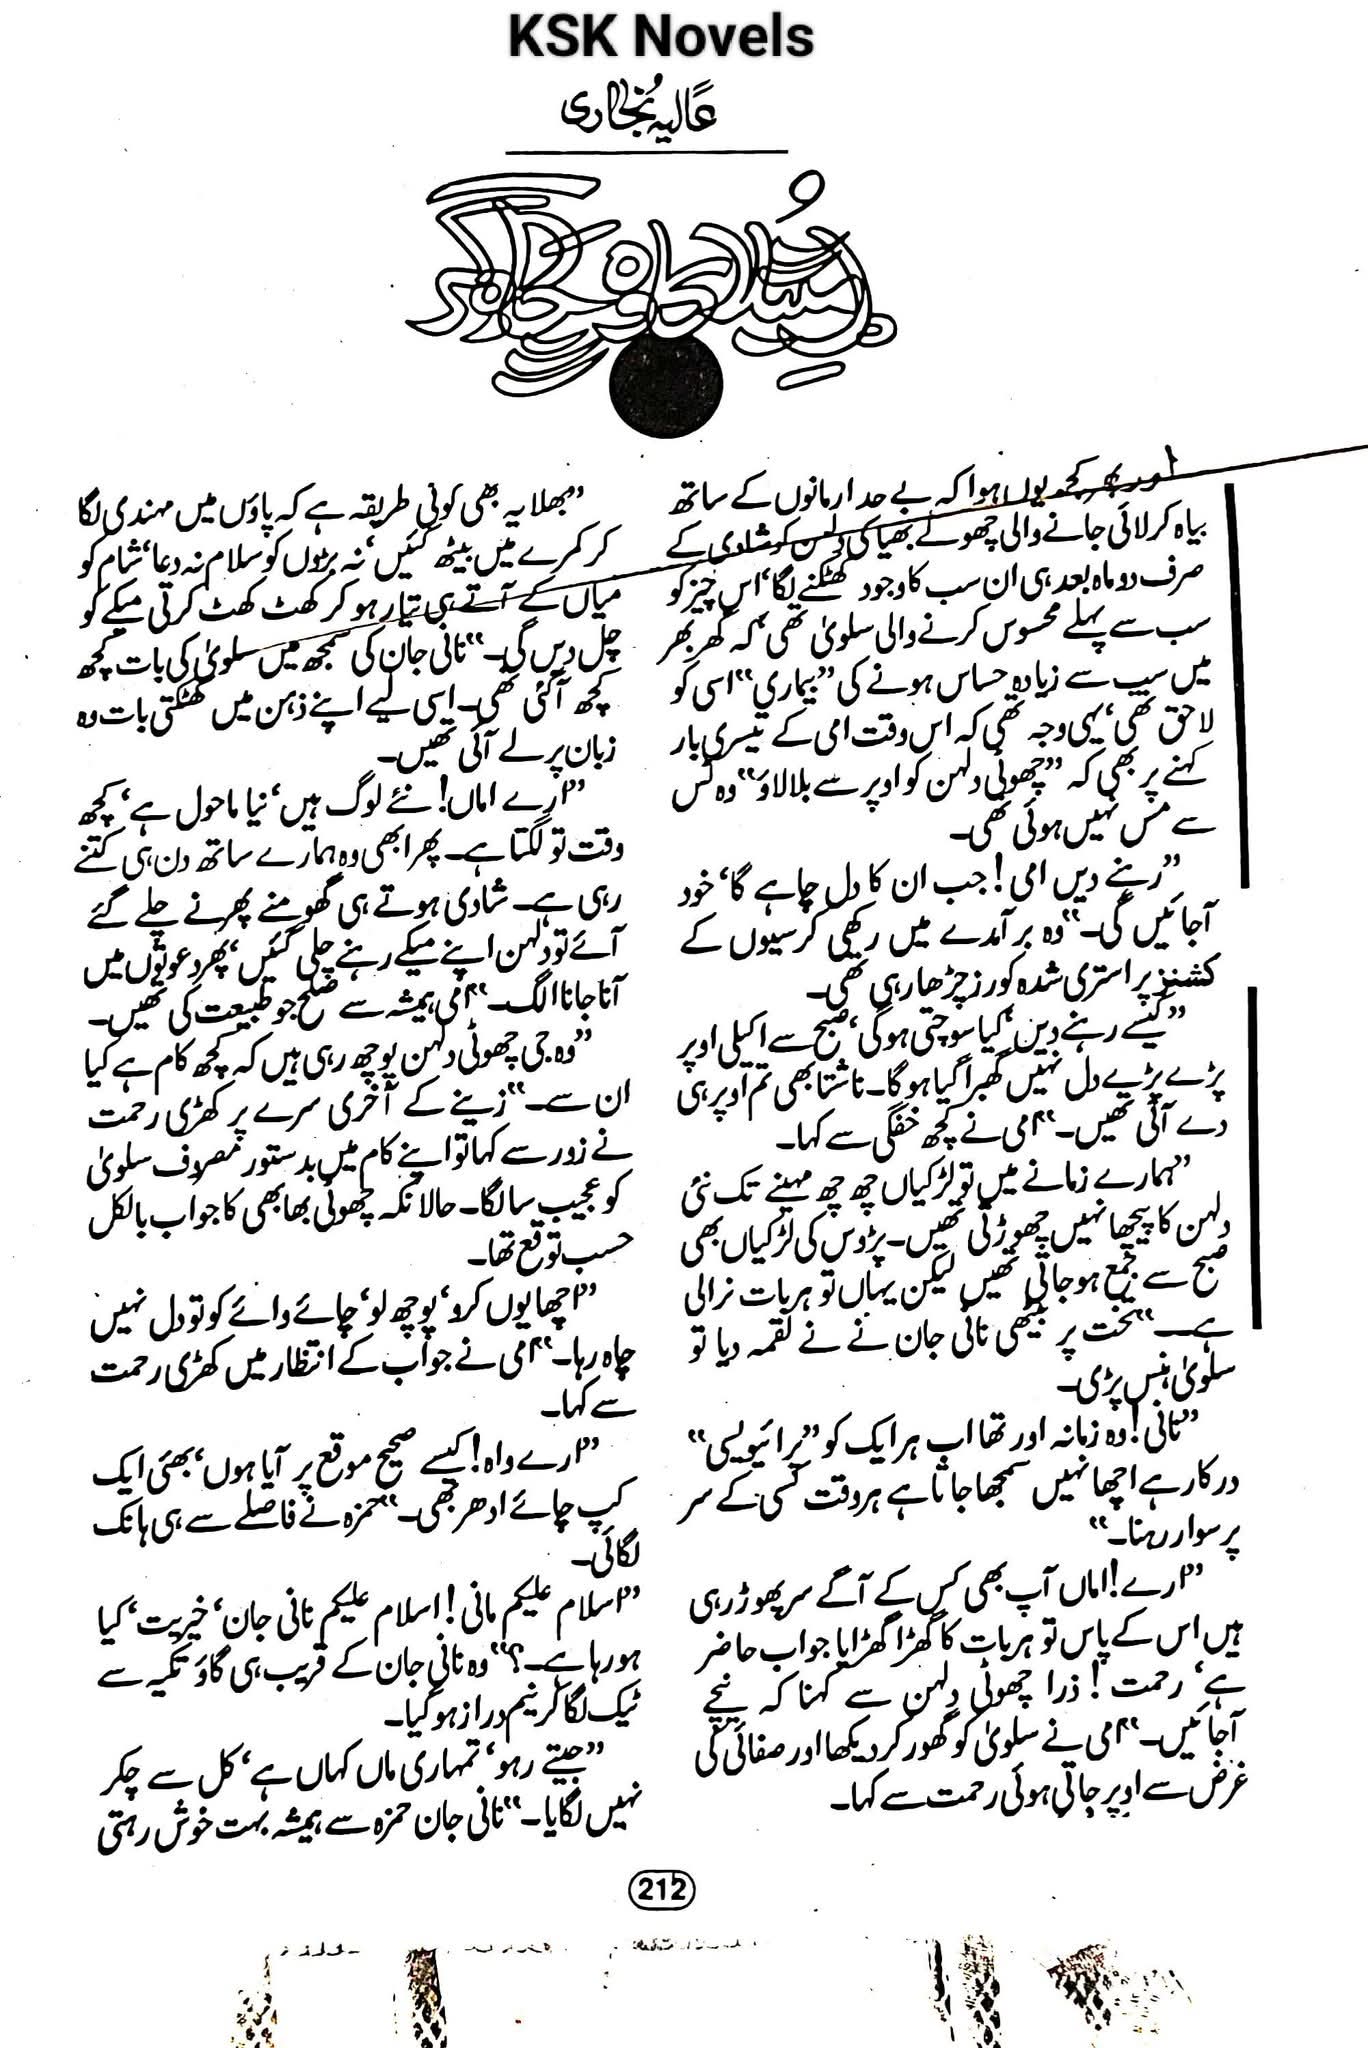 KSK Novels
عالیہ بخاری
اور پھر کچھ یوں ہوا کہ بے حد ارمانوں کے ساتھ
بیاہ کر لائی جانے والی چھوٹے بھیا کی دلہن کو شادی کے
صرف دو ماہ بعد ہی ان سب کا وجود کھٹکنے لگا‘ اس چیز کو
سب سے پہلے محسوس کرنے والی سلویٰ تھی‘ کہ گھر بھر
میں سب سے زیادہ حساس ہونے کی ”بیماری“ اسی کو
لاحق تھی‘ یہی وجہ تھی کہ اس وقت امی کے تیسری بار
کہنے پر بھی کہ ”چھوٹی دلہن کو اوپر سے بلا لاؤ“ وہ ٹس
سے مس نہیں ہوئی تھی۔
”رہنے دیں امی! جب ان کا دل چاہے گا‘ خود
آجائیں گی۔“ وہ برآمدے میں رکھی کرسیوں کے
کشنز پر استری شدہ کورز چڑھا رہی تھی۔
”کیسے رہنے دیں‘ کیا سوچتی ہوگی‘ صبح سے اکیلی اوپر
پڑے پڑے دل نہیں گھبرا گیا ہوگا۔ ناشتا بھی تم اوپر ہی
دے آئی تھیں۔“ امی نے کچھ خفگی سے کہا۔
”ہمارے زمانے میں تو لڑکیاں چھ چھ مہینے تک نئی
دلہن کا پیچھا نہیں چھوڑتی تھیں۔ پڑوس کی لڑکیاں بھی
صبح سے جمع ہو جاتی تھیں لیکن یہاں تو ہر بات نرالی
ہے۔“ تخت پر بیٹھی نانی جان نے نے لقمہ دیا تو
سلویٰ ہنس پڑی۔
”نانی! وہ زمانہ اور تھا اب ہر ایک کو ”پرائیویسی“
درکار ہے اچھا نہیں سمجھا جاتا ہے ہر وقت کسی کے سر
پر سوار رہنا۔“
”ارے! اماں آپ بھی کس کے آگے سر پھوڑ رہی
ہیں اس کے پاس تو ہر بات کا گھڑا گھڑایا جواب حاضر
ہے‘ رحمت! ذرا چھوٹی دلہن سے کہنا کہ نیچے
آجائیں۔“ امی نے سلویٰ کو گھور کر دیکھا اور صفائی کی
غرض سے اوپر جاتی ہوئی رحمت سے کہا۔
”بھلا یہ بھی کوئی طریقہ ہے کہ پاؤں میں مہندی لگا
کر کمرے میں بیٹھ گئیں‘ نہ بڑوں کو سلام نہ دعا‘ شام کو
میاں کے آتے ہی تیار ہو کر کھٹ کھٹ کرتی میکے کو
چل دیں گی۔“ نانی جان کی سمجھ میں سلویٰ کی بات کچھ
کچھ آگئی تھی۔ اسی لیے اپنے ذہن میں کھٹکتی بات وہ
زبان پر لے آئی تھیں۔
”ارے اماں! نئے لوگ ہیں‘ نیا ماحول ہے‘ کچھ
وقت تو لگتا ہے۔ پھر ابھی وہ ہمارے ساتھ دن ہی کتنے
رہی ہے۔ شادی ہوتے ہی گھومنے پھرنے چلے گئے
آئے تو دلہن اپنے میکے رہنے چلی گئیں‘ پھر دعوتوں میں
آنا جانا الگ۔“ امی ہمیشہ سے صلح جو طبیعت کی تھیں۔
”وہ جی چھوٹی دلہن پوچھ رہی ہیں کہ کچھ کام ہے کیا
ان سے۔“ زینے کے آخری سرے پر کھڑی رحمت
نے زور سے کہا تو اپنے کام میں بدستور مصروف سلویٰ
کو عجیب سا لگا۔ حالانکہ چھوٹی بھابھی کا جواب بالکل
حسب توقع تھا۔
”اچھا یوں کرو‘ پوچھ لو‘ چائے وائے کو تو دل نہیں
چاہ رہا۔“ امی نے جواب کے انتظار میں کھڑی رحمت
سے کہا۔
”ارے واہ! کیسے صحیح موقع پر آیا ہوں‘ بھئی ایک
کپ چائے ادھر بھی۔“ حمزہ نے فاصلے سے ہی ہانک
لگائی۔
”اسلام علیکم مانی! اسلام علیکم نانی جان‘ خیریت‘ کیا
ہو رہا ہے۔؟“ وہ نانی جان کے قریب ہی گاؤ تکیہ سے
ٹیک لگا کر نیم دراز ہو گیا۔
”جیتے رہو‘ تمہاری ماں کہاں ہے‘ کل سے چکر
نہیں لگایا۔“ نانی جان حمزہ سے ہمیشہ بہت خوش رہتی
212